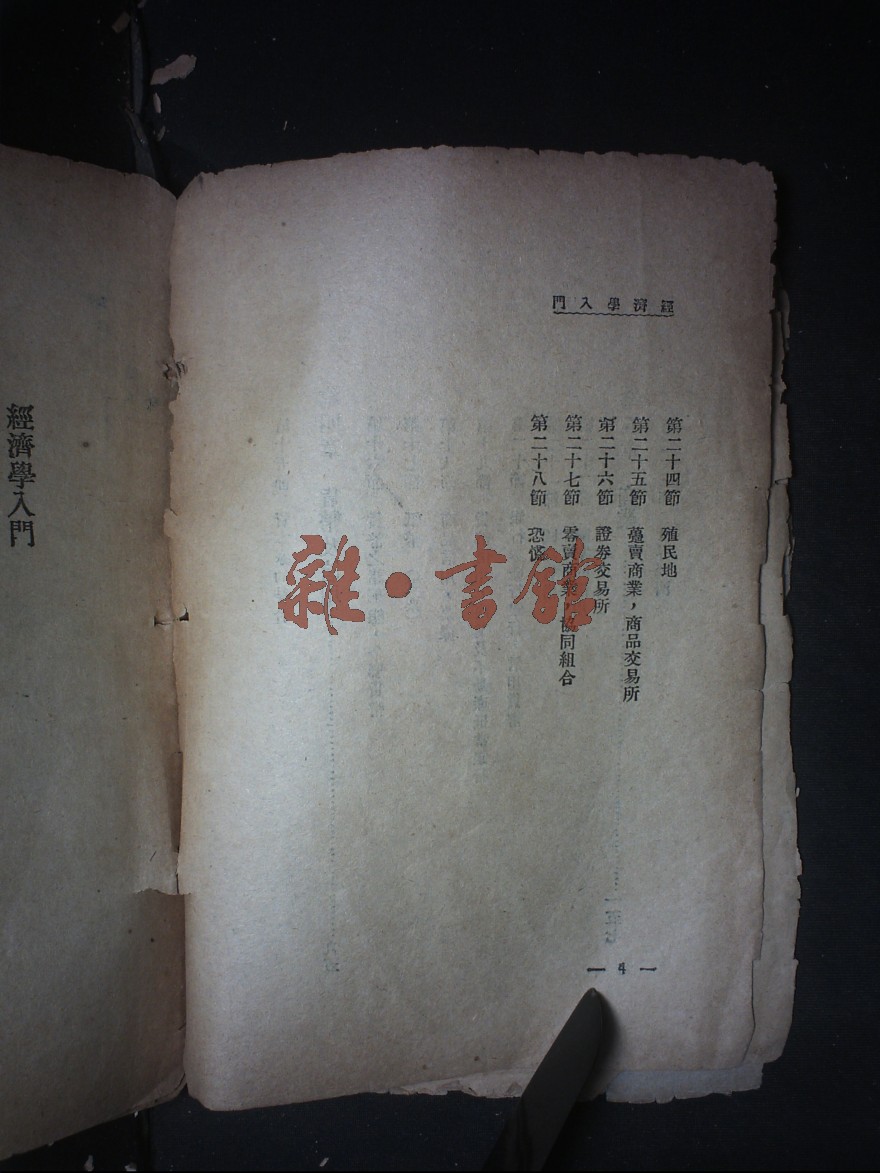 經濟學入門
第二十四節 殖民地
第二十五節 躉賣商業，商品交易所
第二十六節 證券交易所
第二十七節 零賣商業，協同組合
第二十八節 恐慌
— 4 —
雜·書館
經濟學入門